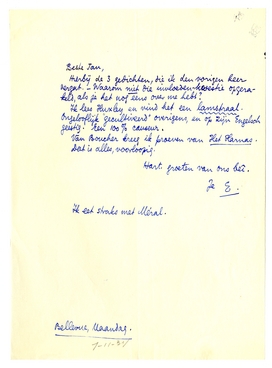 Beste Jan,
Hierbij de 3 gedichten, die ik den vorigen keer
vergat. - Waarom niet die invloeden-kwestie opgera-
keld, als je het nog eens over me hebt?
Ik lees Huxley en vind het een lamstraal.
Ongelooflijk "gecultiveerd" overigens, en op zijn Engelsch
geestig. Een 100% causeur.
Van Boucher kreeg ik proeven van Het Harnas.
Dat is alles, voorloopig.
Hart. groeten van ons bei.
Je E.
Ik eet straks met Méral.
Bellevue, Maandag.